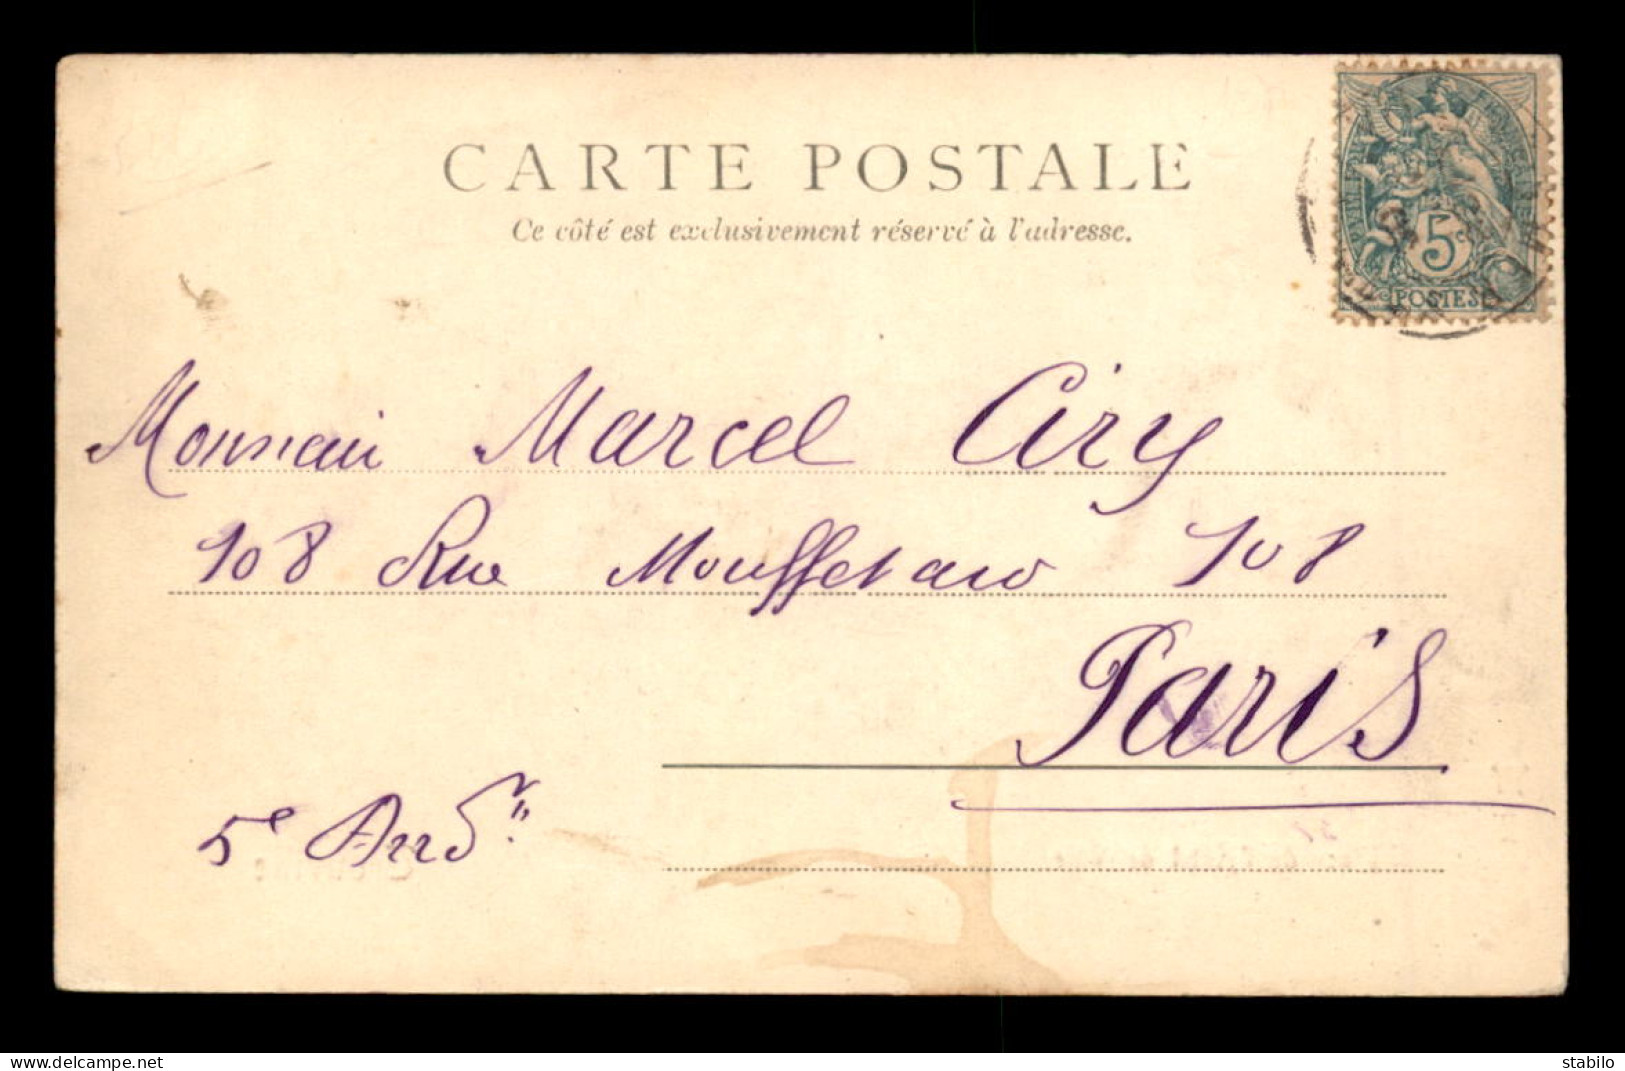 CARTE POSTALE
Ce côté est exclusivement réservé à l'adresse.
5c
POSTES
Monsieur Marcel Ciry
108 Rue Mouffetard 108
Paris
5e Arrdt
delcampe.net
stabilo